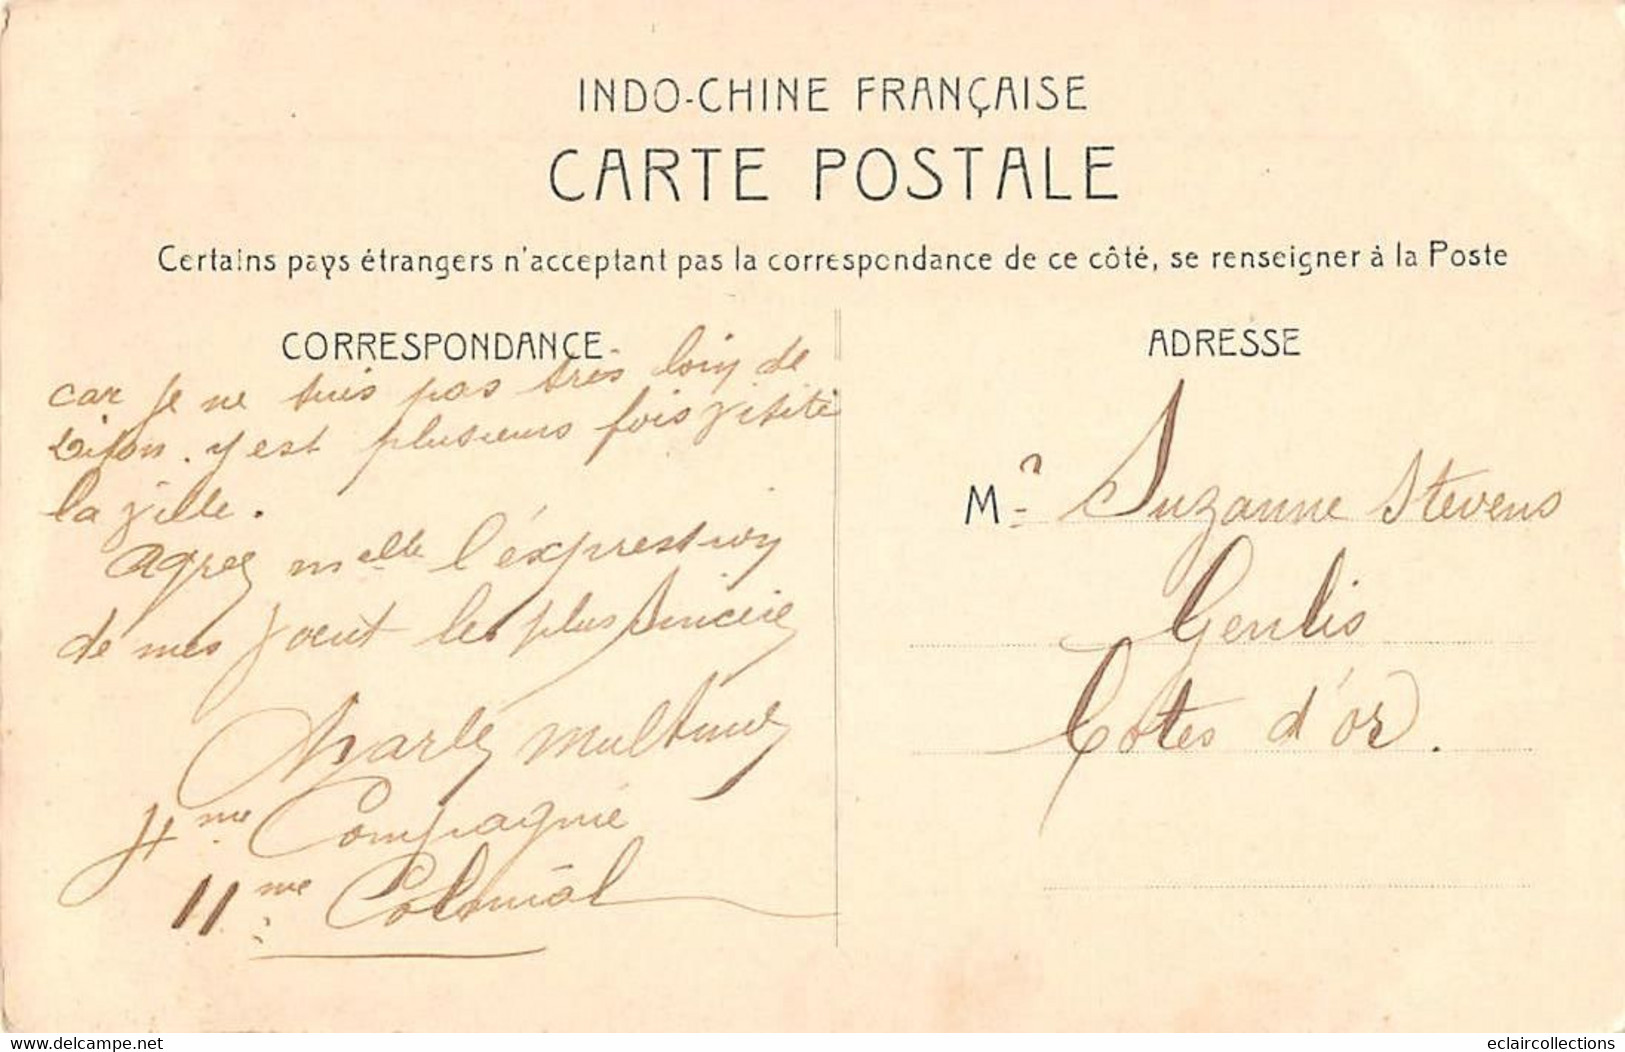 INDO-CHINE FRANÇAISE
CARTE POSTALE
Certains pays étrangers n'acceptant pas la correspondance de ce côté, se renseigner à la Poste
CORRESPONDANCE
car je ne suis pas très loin de
Dijon. y est plusieurs fois visité
la ville.
Agrez melle l'éxpression
de mes les plus Sincère
Charle
4me Compagnie
11me Colonial
ADRESSE
M Suzanne Stevens
Genlis
Côtes d'or.
Delcampe.net
eclaircollections